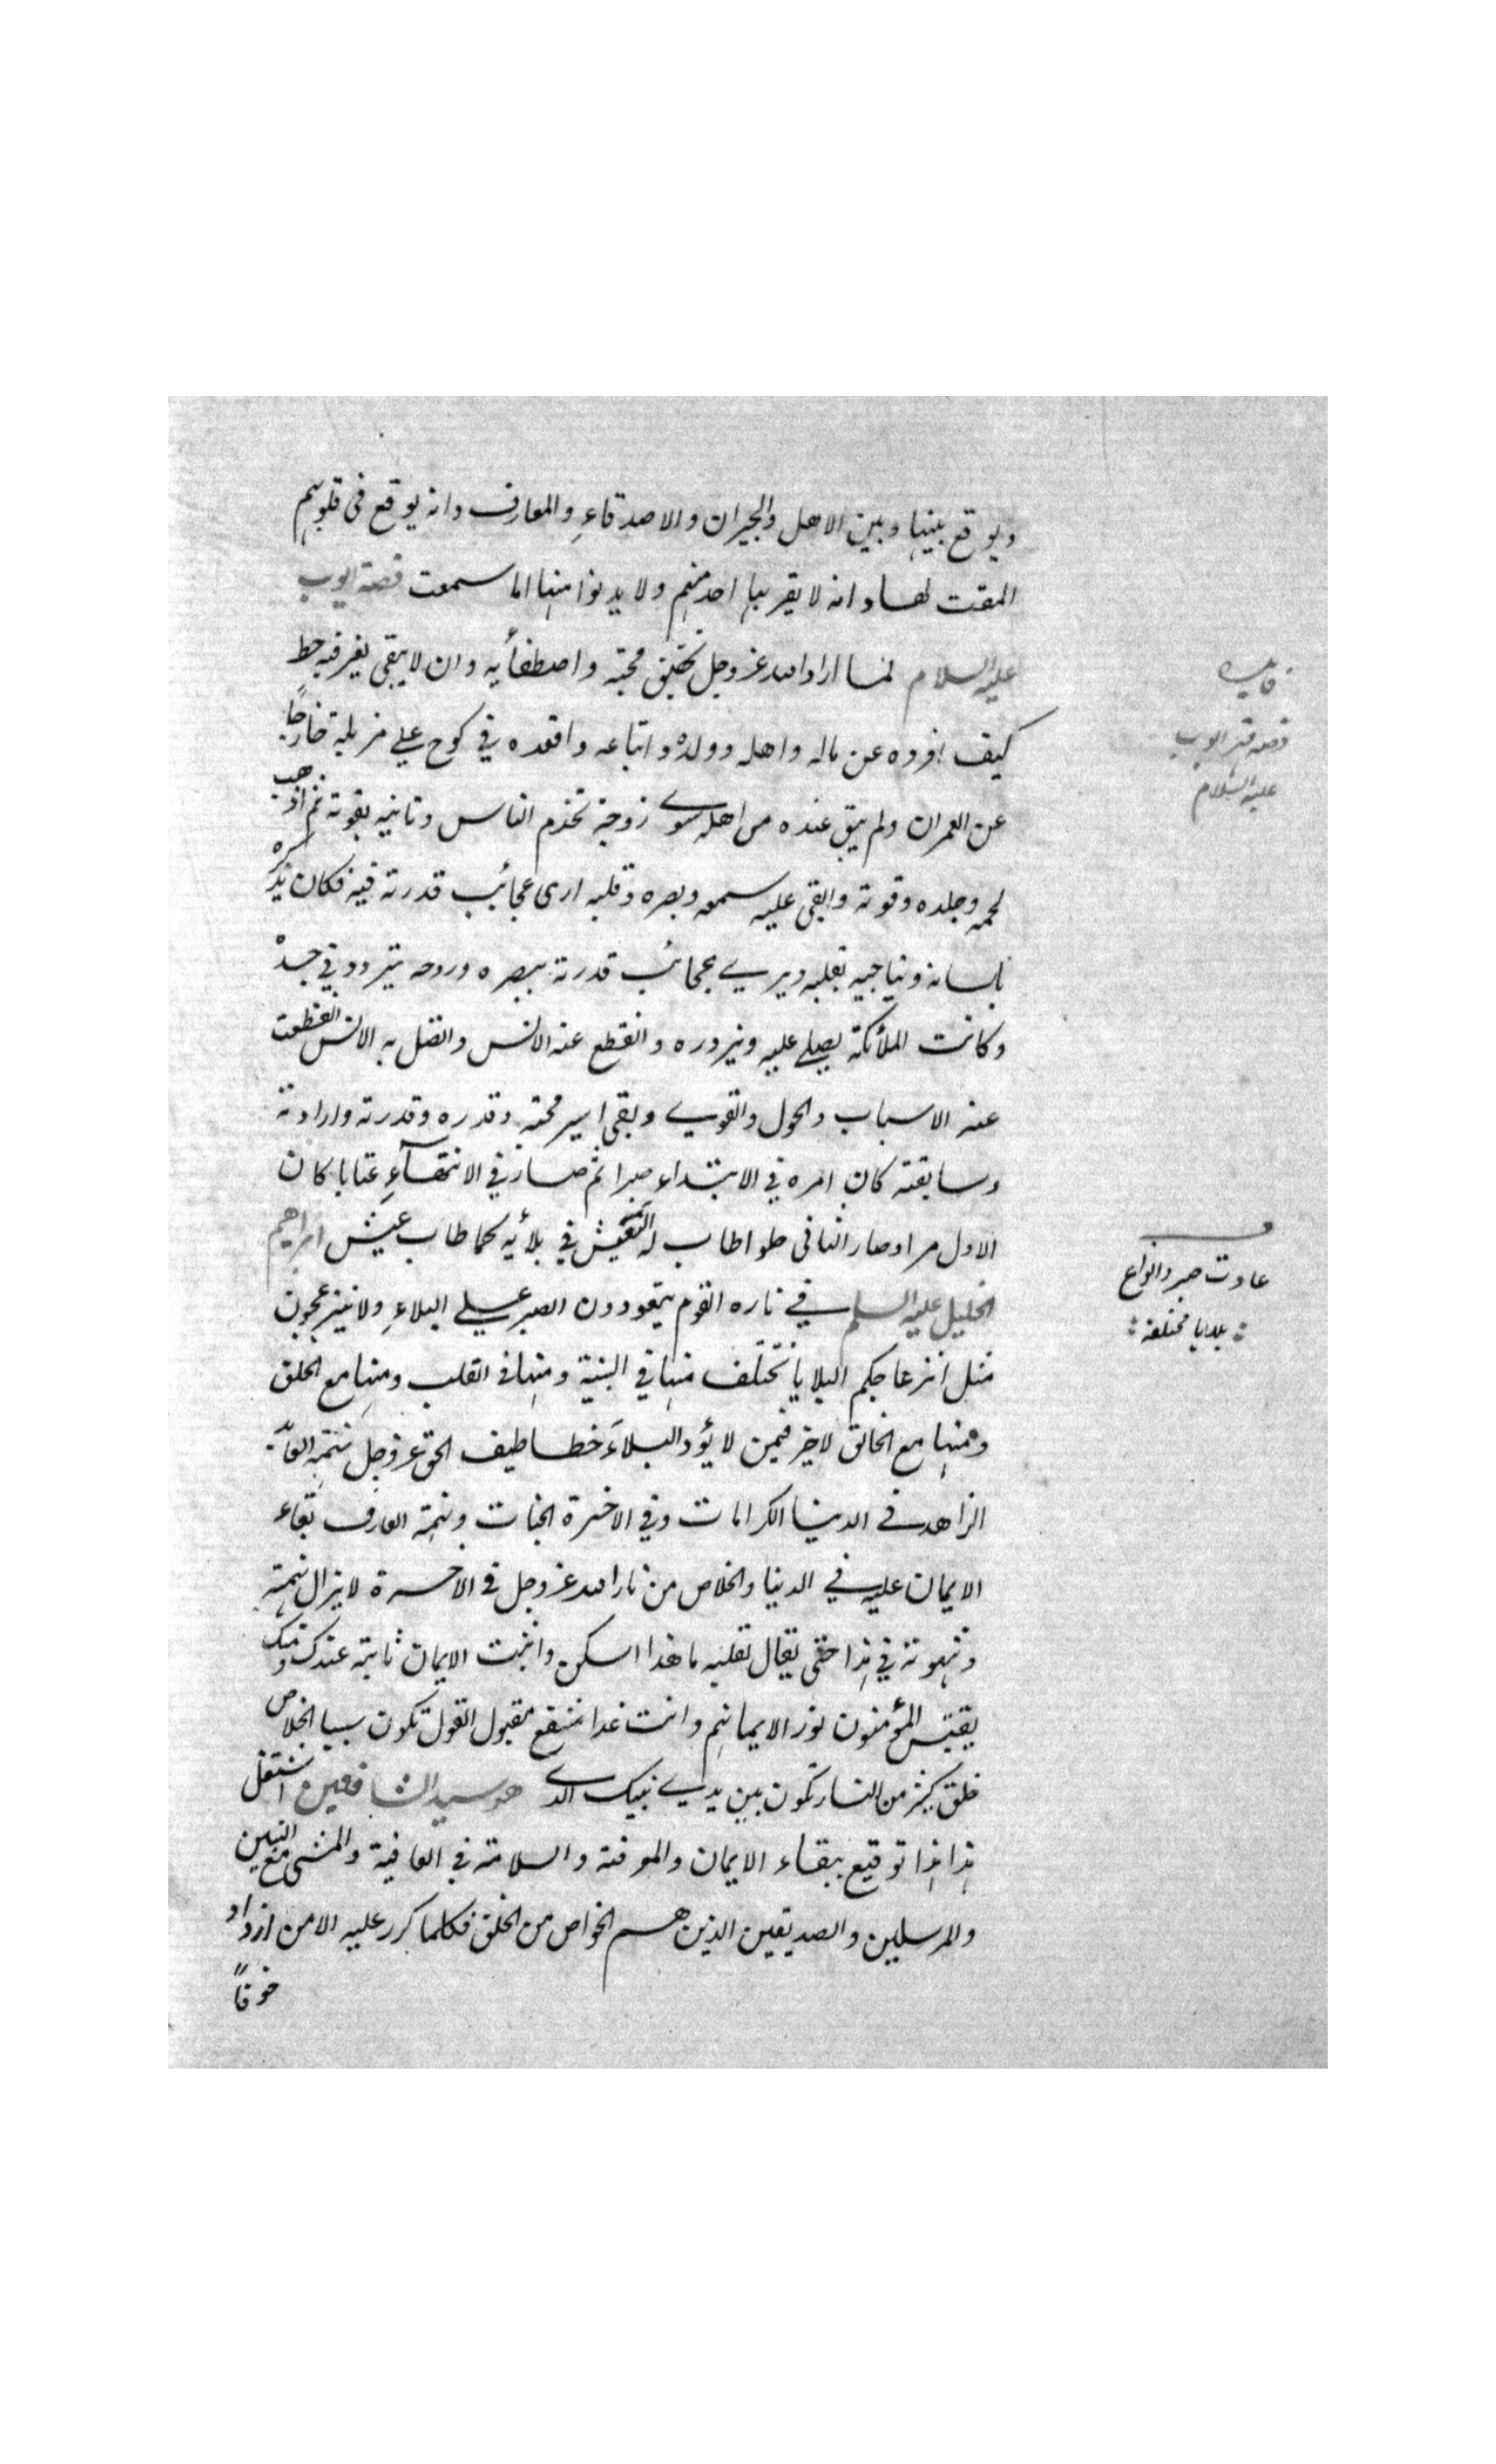 ويوقع بينها وبين الاهل والجيران والاصدقاءِ والمعارف وانه يوقع فى قلوبهم
المقت لها وانه لا يقربها احد منهم ولا يدنوا منها اما سمعت قصة ايوب
عليه السلام لما اراد الله عز وجل تحقيق محبته واصطفأيه وان لا يبقى لغير فيه حظ
كيف افرده عن ماله واهله وولده واتباعه واقعده في كوح على مزبلة خارجًا
عن العمران ولم يبق عنده من اهله سوى زوجة تخدم الناس وتاتيه بقوته ثم اذهب
لحمه وجلده وقوته وابقى عليه سمعه وبصره وقلبه ارى عجائب قدرته فيه فكان يذكره
بلسانه ويناجيه بقلبه ويرى عجائب قدرته ببصره وروحه يتردد في جسده
وكانت الملأئكة يصلي عليه ويزوره وانقطع عنه الانس واتصل به الانس انقطعت
عنه الاسباب والحول والقوى وبقى اسير محبته وقدره وقدرته وارادته
وسابقته كان امره في الابتداء صبرا ثم صار في الانتهآءِ عتابا كان
الاول مرا وصار الثانى حلوا طاب له التعيش في بلأيه كما طاب عيش ابراهيم
الخليل عليه السلم في ناره القوم يتعودون الصبر على البلاءِ ولا ينزعجون
مثل انزعاجكم البلايا تختلف منها في البنية ومنها فى القلب ومنها مع الخلق
ومنها مع الخالق لا خير فيمن لا يؤد البلآء خطاطيف الحق عز وجل نهمة
الزاهد فى الدنيا الكرامات وفي الاخرة الجنات ونهمة العارف بقاء
الايمان عليه في الدنيا والخلاص من نار الله عز وجل فى الاخرة لا يزال نهمته
وشهوته في هذا حتى يقال لقلبه ما هذا اسكن واثبت الايمان ثابتة عندك ومنك
يقتبس المؤمنون نور الايمانهم وانت غدا مشفع مقبول القول تكون سببا لخلاص
خلق كثير من النار تكون بين يدى نبيك الذى هو سيد الشافعين اشتغل
هذا هذا توقيع ببقاء الايمان والمعرفة والسلامة في العافية والمشى مع النبيين
والمرسلين والصديقين الذين هم الخواص من الخلق فكلما كرر عليه الامن ازداد
خوفًا
فايده
قصه ايوب
عليه السلام
عادت صبر وانواع
بلايا مختلفه